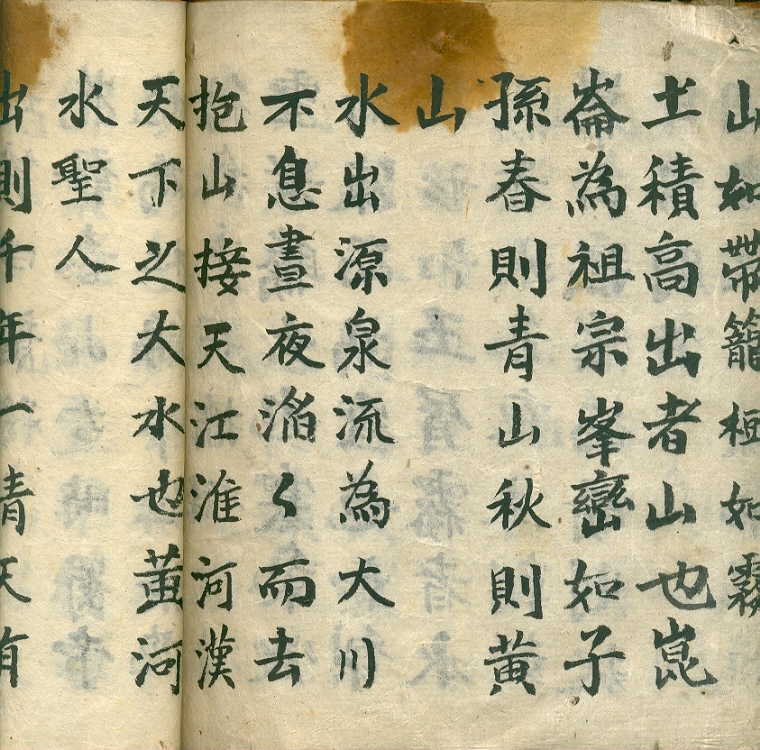 山如帶籠如霧
土積高出者山也崑
崙為祖宗峯巒如子
孫春則青山秋則黃
山
水出源泉流為大川
不息晝夜滔〱而去
抱山接天江淮河漢
天下之大水也黃河
水聖人
出則千年一清天有